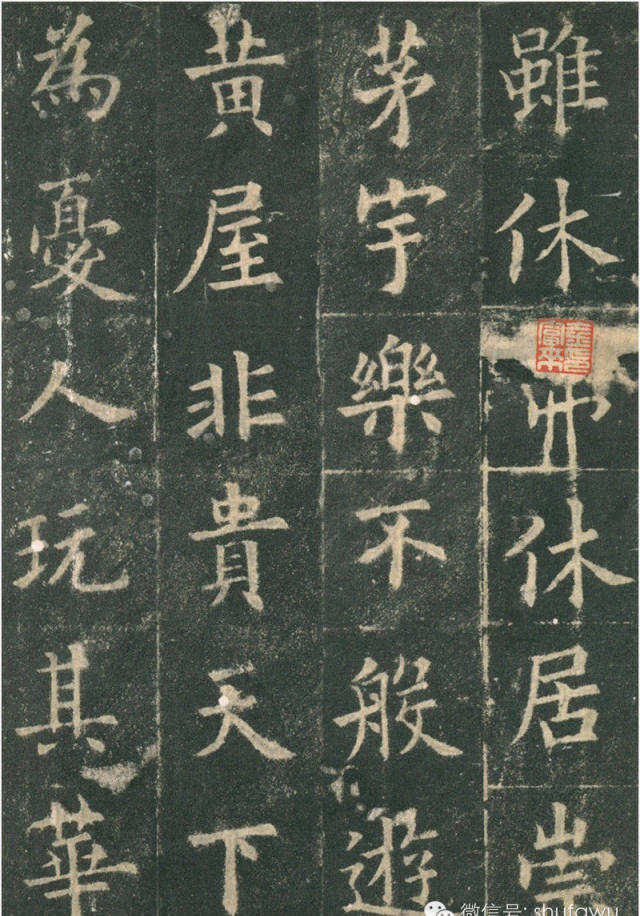 雖休休居崇
茅宇樂不般遊
黃屋非貴天下
為憂人玩其華
微信号: shufawu